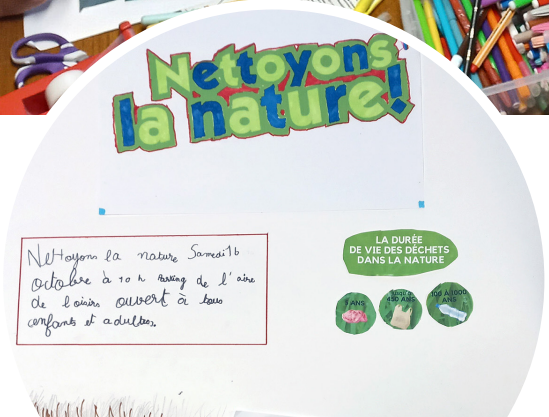 Nettoyons
la nature!
Nettoyons la nature Samedi 16
octobre à 10 h Parking de l'aire
de loisirs ouvert à tous
enfants et adultes.
LA DURÉE
DE VIE DES DÉCHETS
DANS LA NATURE
5 ANS
450 ANS
100 À 1000
ANS